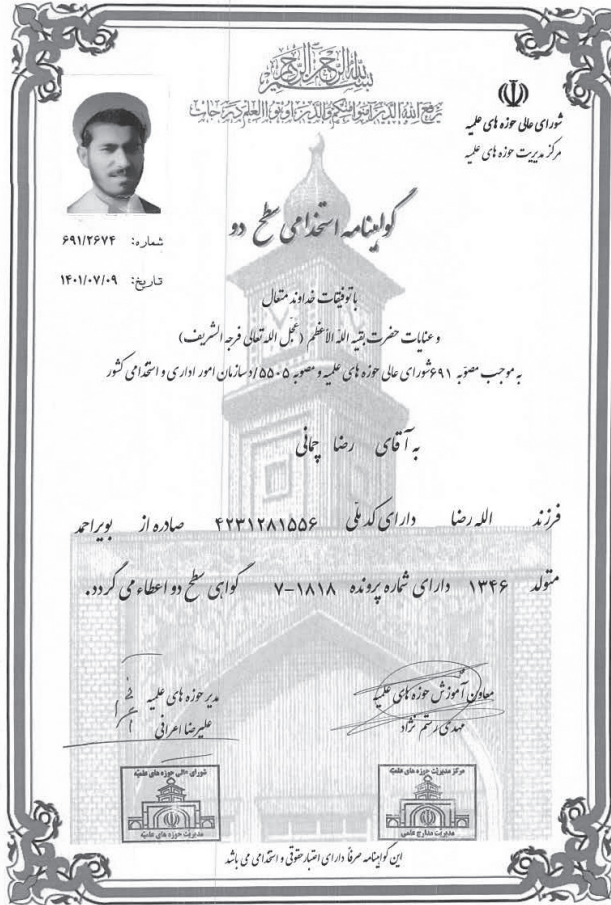 بسم الله الرحمن الرحیم
یرفع الله الذین آمنوا منکم والذین اوتوا العلم درجات
شورای عالی حوزه های علمیه
مرکز مدیریت حوزه های علمیه
گواهینامه استخدامی سطح دو
شماره: ۶۹۱/۲۶۷۴
تاریخ: ۱۴۰۱/۰۷/۰۹
با توفیقات خداوند متعال
و عنایات حضرت بقیه الله الأعظم (عجّل الله تعالی فرجه الشریف)
به موجب مصوّبه ۶۹۱ شورای عالی حوزه های علمیه و مصوبه ۵۵۰۵/د سازمان امور اداری و استخدامی کشور
به آقای رضا چمانی
فرزند الله رضا دارای کد ملّی ۴۲۳۱۲۸۱۵۵۶ صادره از بویراحمد
متولد ۱۳۴۶ دارای شماره پرونده ۷-۱۸۱۸ گواهی سطح دو اعطاء می گردد.
معاون آموزش حوزه های علمیه
مهدی رستم نژاد
مدیر حوزه های علمیه
علیرضا اعرافی
مرکز مدیریت حوزه های علمیّه
مدیریت مدارج علمی
شورای عالی حوزه های علمیّه
مدیریت حوزه های علمیّه
این گواهینامه صرفاً دارای اعتبار حقوقی و استخدامی می باشد